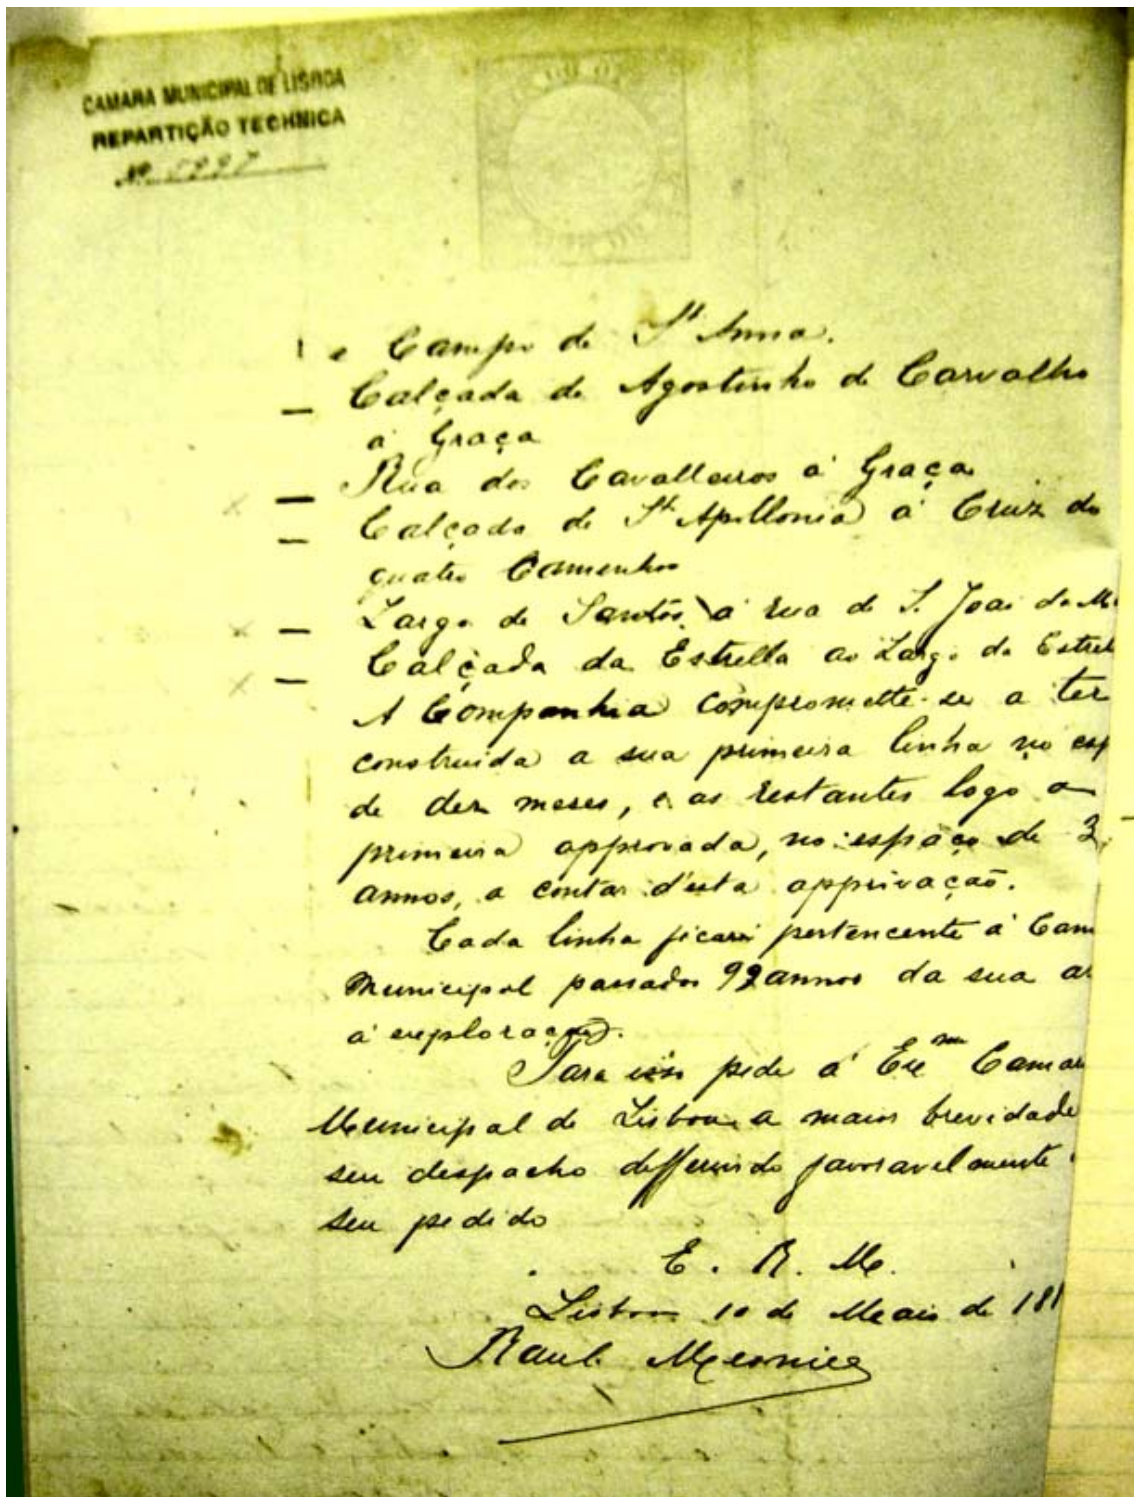 CAMARA MUNICIPAL DE LISBOA
REPARTIÇÃO TECHNICA
Nº
e Campo de Stª Anna.
— Calçada de Agostinho de Carvalho
á Graça
— Rua dos Cavalleiros á Graça
— Calçada de Stª Apollonia á Cruz do
quatro Caminhos
— Largo de Santos á rua de S. João da M
— Calçada da Estrella ao Largo da Estrel
A Companhia compromette-se a ter
construida a sua primeira linha no esp
de dez meses, e as restantes logo a
primeira approvada, no espaço de 3
annos, a contar d'esta approvação.
Cada linha ficará pertencente á Cam
Municipal passados 99 annos da sua a
á exploração.
Para isso pede á Exmª Camar
Municipal de Lisboa a maior brevidade
seu despacho defferindo favoravelmente
seu pedido
E. R. M.
Lisboa 10 de Maio de 188
Raul Mesnier